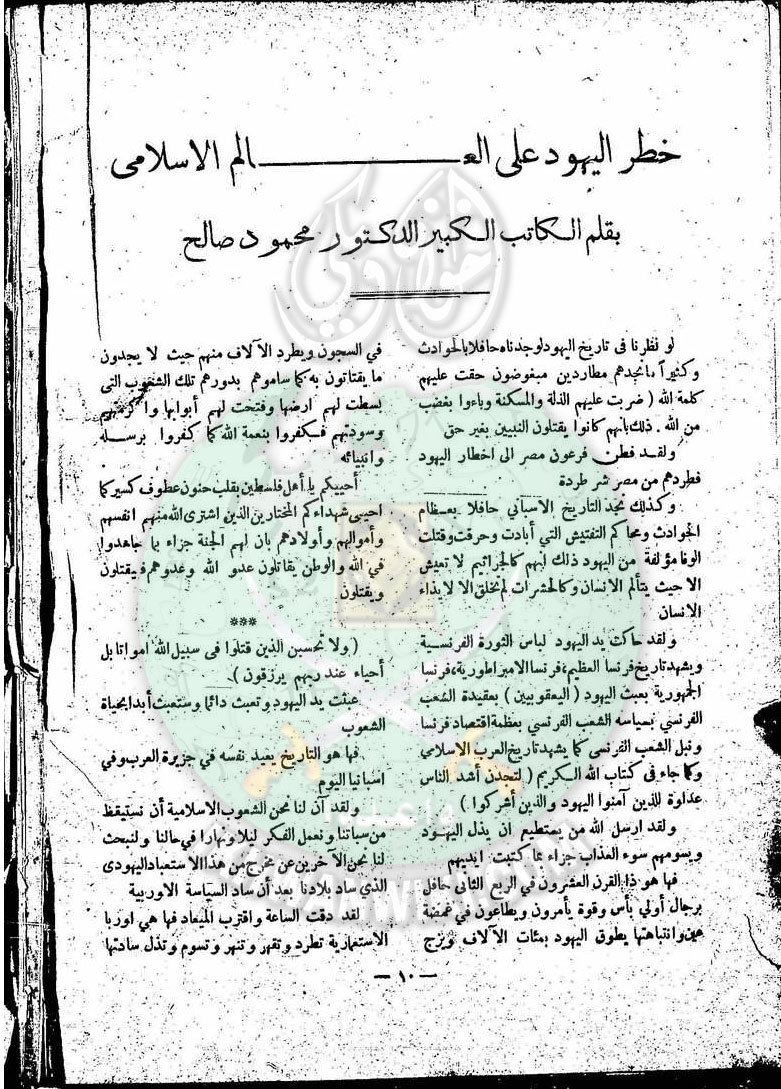 خطر اليهود على العـــالم الاسلامى
بقلم الكاتب الكبير الدكتور محمود صالح
لو نظرنا فى تاريخ اليهود لوجدناه حافلا بالحوادث
وكثيراً مانجدهم مطاردين مبغوضون حقت عليهم
كلمة الله ( ضربت عليهم الذلة والمسكنة وباءوا بغضب
من الله . ذلك بأنهم كانوا يقتلون النبيين بغير حق
ولقد فطن فرعون مصر الى اخطار اليهود
فطردهم من مصر شر طردة
وكذلك نجد التاريخ الاسبانى حافلا بعظام
الحوادث ومحاكم التفتيش التي أبادت وحرقت وقتلت
الوفا مؤلفة من اليهود ذلك لبهم كالجراثيم لا تعيش
الا حيث يتألم الانسان وكالحشرات لم تخلق الا لايذاء
الانسان
ولقد حاكت يد اليهود لباس الثورة الفرنسية
ويشهد تاريخ فرنسا العظيم، فرنسا الامبراطورية، فرنسا
الجمهورية بعبث اليهود ( اليعقوبيين ) بعقيدة الشعب
الفرنسي بسياسه الشعب الفرنسي بعظمة اقتصاد فرنسا
ونبل الشعب الفرنسى كما يشهد تاريخ العرب الاسلامي
وكما جاء فى كتاب الله الكريم ( لتجدن أشد الناس
عداوة للذين آمنوا اليهود والذين أشركوا )
ولقد ارسل الله من يستطيع ان يذل اليهود
ويسومهم سوء العذاب جزاء بما كتبت ايديهم
فها هو ذا القرن العشرون في الربع الثانى حافل
برجال أولي بأس وقوة يأمرون ويطاعون في غمضة
عين وانتباهتها يطوق اليهود بمئات الآلاف ويزج
في السجون ويطرد الآلاف منهم حيث لا يجدون
ما يقتاتون به كما ساموهم بدورهم تلك الشعوب التى
بسطت لهم ارضها وفتحت لهم أبوابها واكرمتهم
وسودتهم فكفروا بنعمة الله كما كفروا برسله
وانبيائه
أحييكم يا أهل فلسطين بقلب حنون عطوف كسير كما
احيى شهداءكم المختارين الذين اشترى الله منهم انفسهم
وأموالهم وأولادهم بان لهم الجنة جزاء بما جاهدوا
في الله والوطن يقاتلون عدو الله وعدوهم فيقتلون
ويقتلون
***
( ولا تحسبن الذين قتلوا فى سبيل الله امواتا بل
أحياء عند ربهم يرزقون ) .
عبثت يد اليهود وتعبث دائما وستعبث أبدا بحياة
الشعوب
فها هو التاريخ يعيد نفسه في جزيرة العرب وفي
اسبانيا اليوم
ولقد آن لنا نحن الشعوب الاسلامية أن نستيقظ
من سباتنا ونعمل الفكر ليلا ونهارا في حالنا ولنبحث
لنا نحن الآخرين عن مخرج من هذا الاستعباد اليهودى
الذي ساد بلادنا بعد أن ساد السياسة الاوربية
لقد دقت الساعة واقترب الميعاد فها هي اوربا
الاستعمارية تطرد وتقهر وتنهر وتسوم وتذل سادتها
— ١٠ —